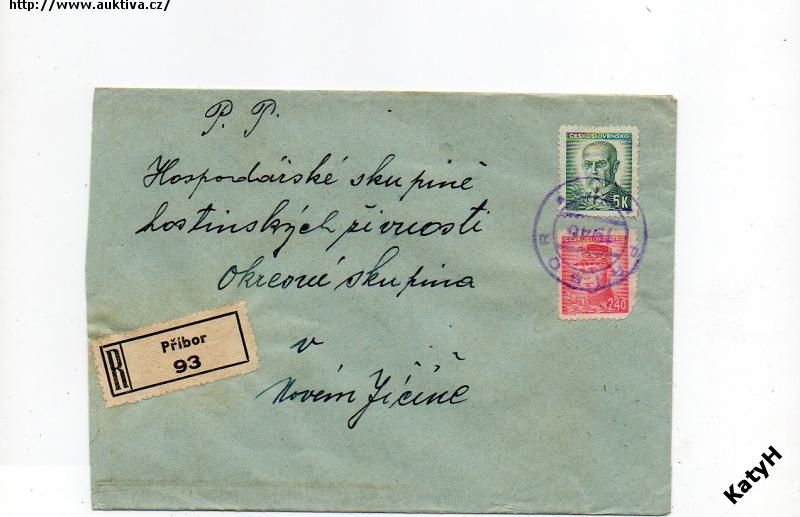 http://www.auktiva.cz/
P. P.
Hospodářské skupině
hostinských živností
Okresné skupina
v
Novém Jičíně
ČESKOSLOVENSKO
5K
ČESKOSLOVENSKO
2·40
PŘÍBOR
1946
R
Příbor
93
KatyH